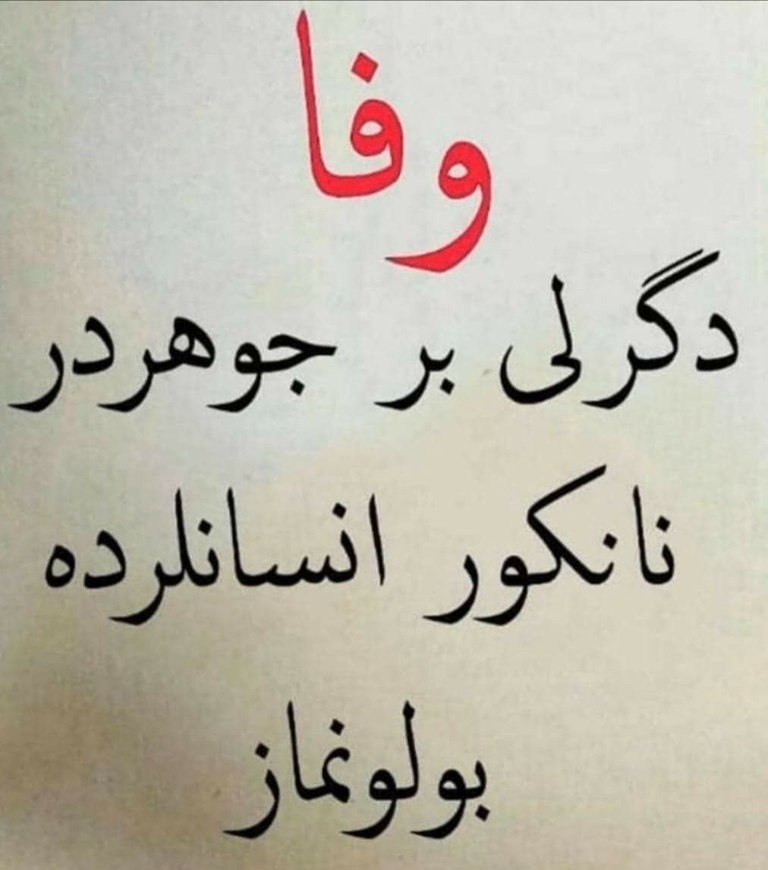 وفا
دگرلی بر جوهردر
نانکور انسانلرده
بولونماز